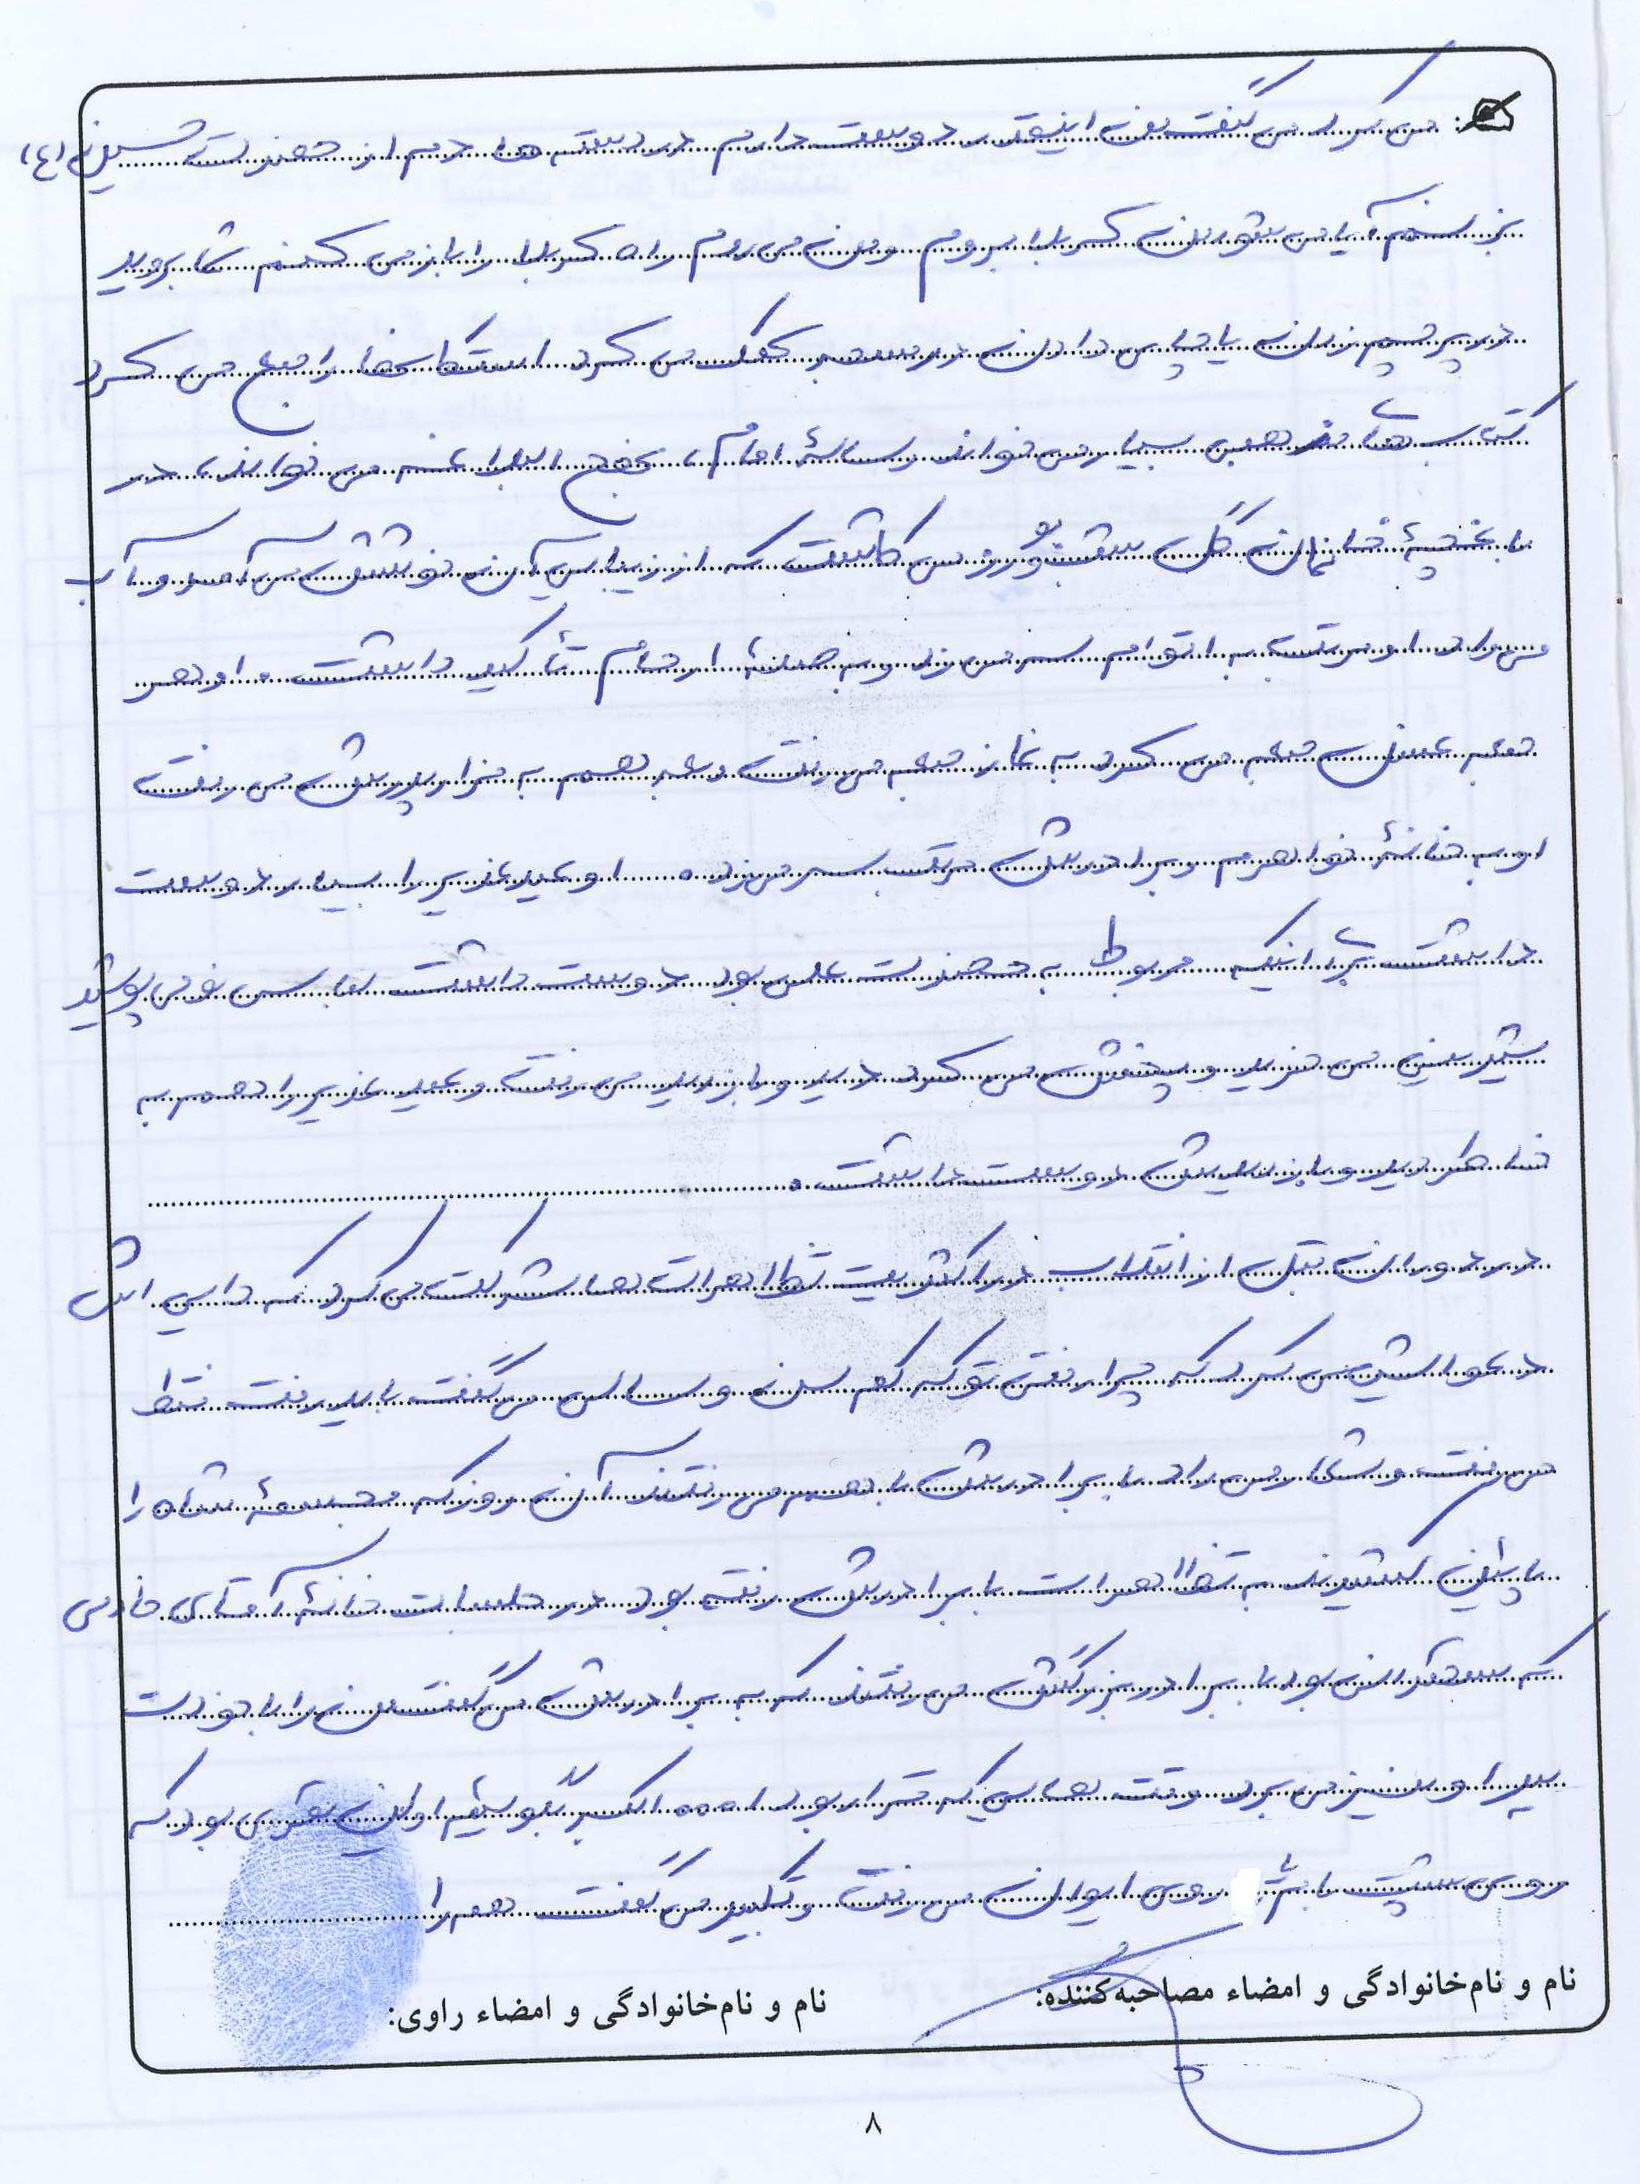 می کرد می گفت من اینقدر دوست دارم در دسته ها دم از حضرت حسین (ع)
بزنم آیا می شود من کربلا بروم ومن می روم راه کربلا را باز می کنم شما بروید
در پرچم زدن یا چاپی دادن در مسجد کمک می کرد استکانها را جمع می کرد
کتاب های مذهبی بسیار می خواند رسالۀ امام، نهج البلاغه می خواند، در
باغچۀ خانمان گل شب بو و رز می کاشت که از زیبایی آن خوشش می آمد و آب
می داد او مرتب به اقوام سر می زد و به صلۀ ارحام تأکید داشت. او هر
جمعه غسل جمعه می کرد به نماز جمعه می رفت و بعد هم به مزار پدرش می رفت
او به خانۀ خواهرم و برادرش مرتب سر می زد. او عید غدیر را بسیار دوست
داشت برای اینکه مربوط به حضرت علی بود دوست داشت لباس نو می پوشید
شیرینی می خرید و پخش می کرد دید و بازدید می رفت و عید غدیر را هم به
خاطر دید و بازدیدش دوست داشت.
در دوران قبل از انقلاب در اکثریت تظاهرات ها شرکت می کرد که دایی اش
دعوایش می کرد که چرا رفتی تو که کم سن و سالی می گفت باید رفت فقط
می رفت و شعار می داد با برادرش با هم می رفتند آن روز که مجسمۀ شاه را
پائین کشیدند به تظاهرات با برادرش رفته بود در جلسات خانۀ آقای خادمی
که سخنرانی بود با برادر بزرگش می رفتند که به برادرش می گفت من را با خودت
ببر او نیز می برد وقت هایی که قرار بود ا... اکبر بگوئیم اولین نفری بود که
روی پشت بام روی ایوان می رفت و تکبیر می گفت همراه
نام و نام‌خانوادگی و امضاء مصاحبه‌کننده:
نام و نام‌خانوادگی و امضاء راوی:
۸